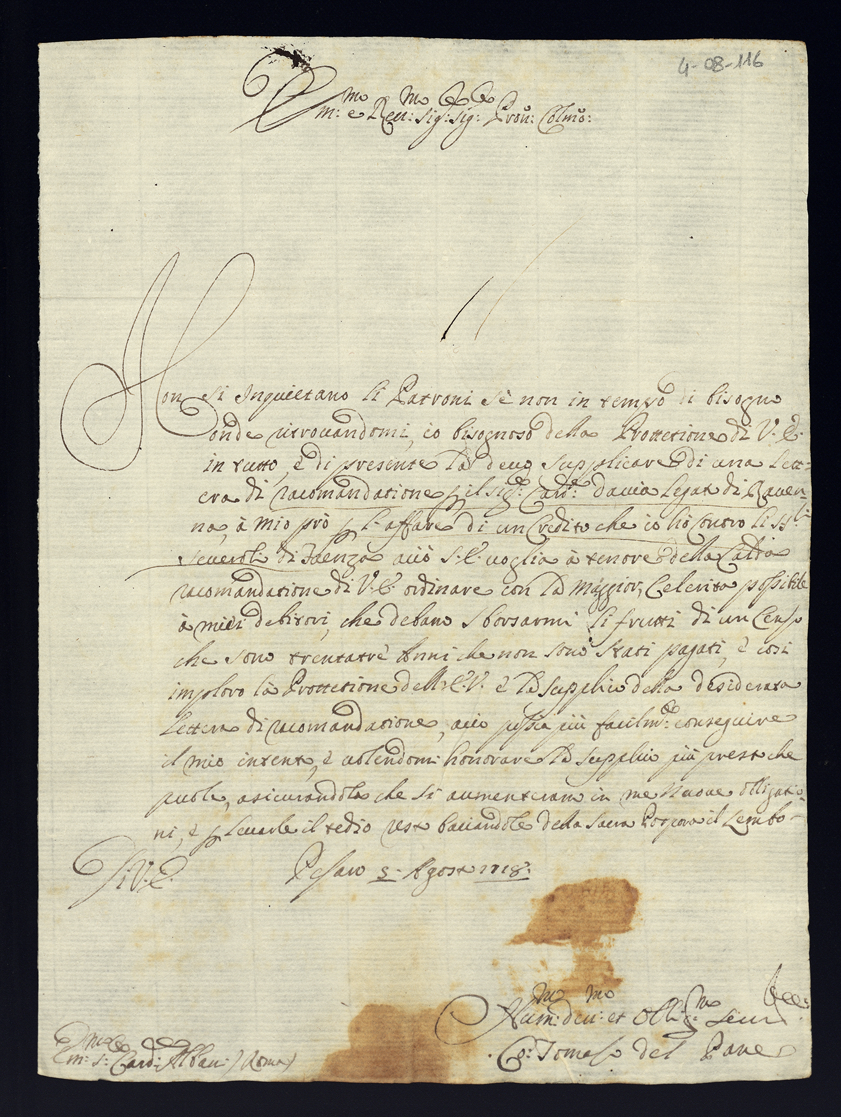 4-08-116
Em:mo e Reu:mo Sig: Sig: Pron: Colmo:
Non si Inquietano li Patroni se non in tempo di bisogno
onde ritrovandomi io bisognoso della Prottetione di V. E.
in tutto, è di presente la devo supplicare di una Lett-
era di racomandatione p il sig: Card: Davia Legat di Raven-
na, à mio prò p l'affare di un Credito che io hò contro li SS:ri
Severoli di Faenza acciò S. E. voglia à tenore della
racomandatione di V. E. ordinare con la maggior Celerita possibile
à miei debitori, che debano sborsarmi li frutti di un Censo
che sono trentatrè Anni che non sono stati pagati, è cosi
imploro la Prottetione dell'E. V. è la supplico della desiderata
Lettera di racomandatione, acciò possa più facilm:te conseguire
il mio intento, è volendomi honorare la supplico più presto che
puole, asicurandola che si aumenteranno in me Nuove obligatio-
ni, è p levarle il tedio resto baciandole della Sacra Porpora il Lembo-
Di V. E. Pesaro 5 Agosto 1718.
Hum:mo deu:mo et Obli:mo Seru:
Co: Tomaso del Pane
Em:mo S: Card: Albani (Roma)